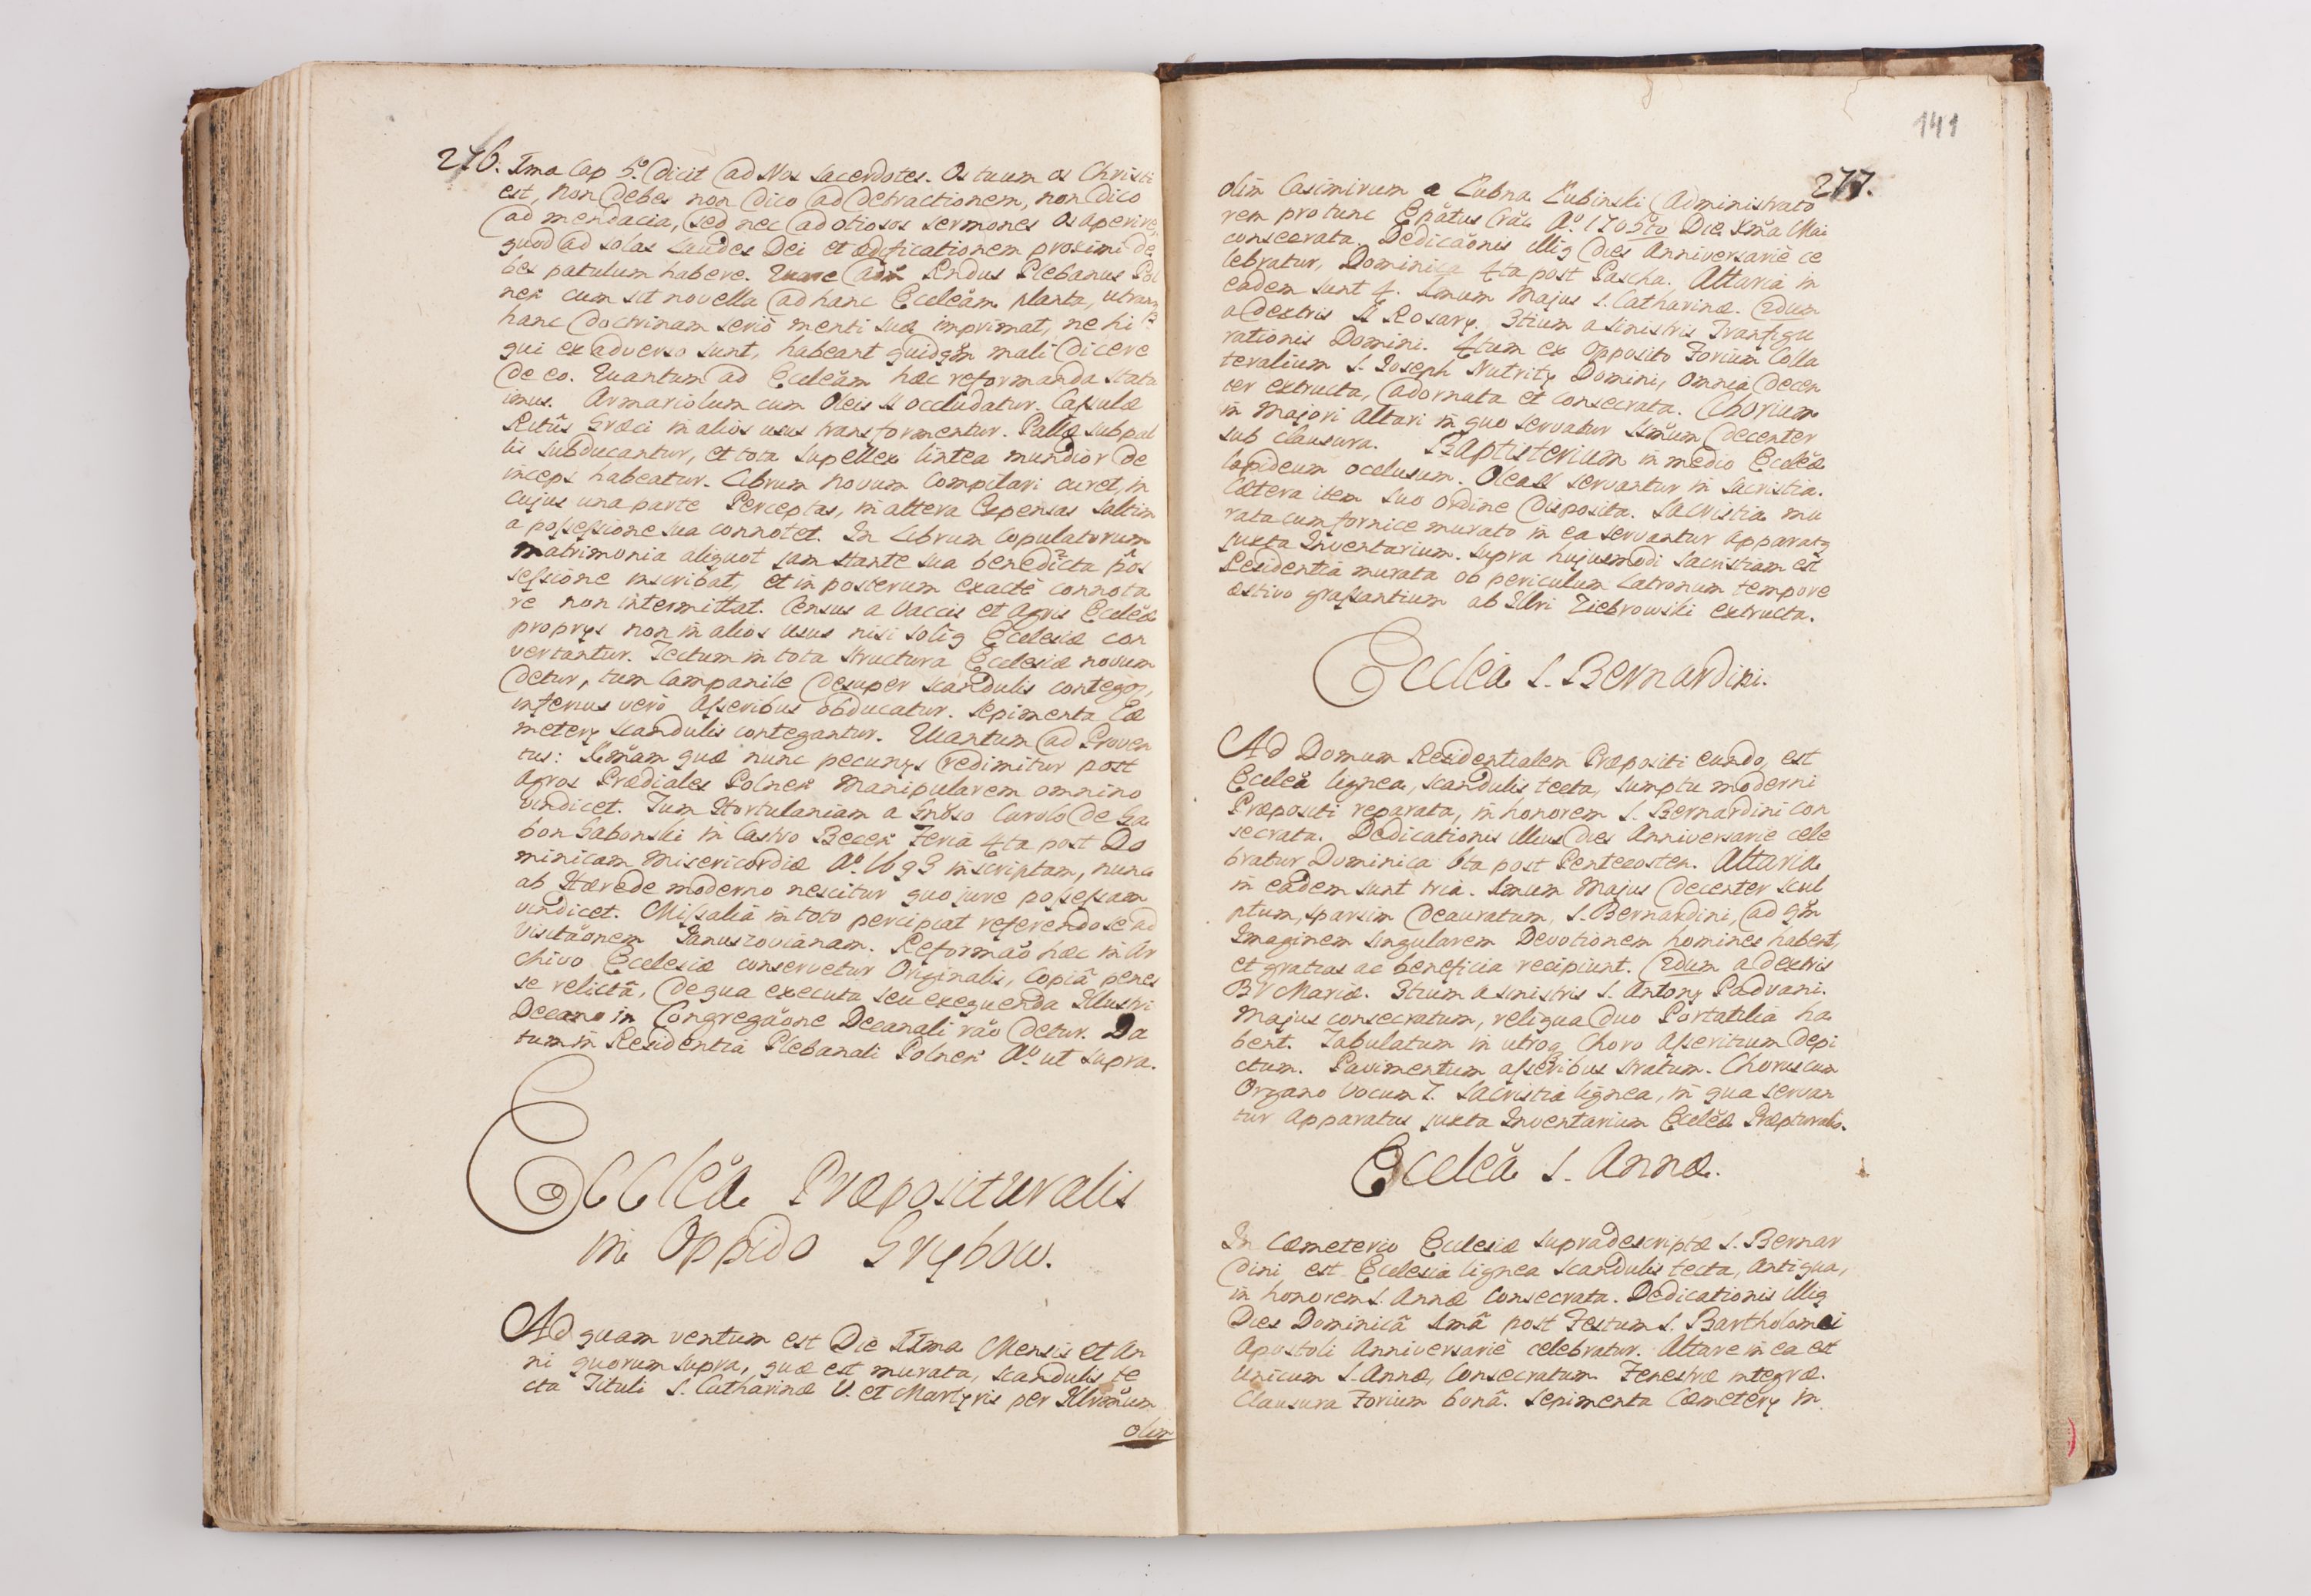 276.
Ima Cap 5. dicit ad Nos Sacerdotes. Os tuum os Christi
est, non debes non dico ad detractionem, non dico
ad mendacia, sed nec ad otiosos sermones os aperire,
quod ad solas Laudes Dei et ædificationem proximi de
bes patulum habere. Quare Adm Rndus Plebanus Pol
nen cum sit novella ad hanc Eccleăm planta, utramq
hanc doctrinam seriò menti suæ imprimat, ne hi
qui ex adverso sunt, habeant quidqm mali dicere
de eo. Quantum ad Ecclăm hæc reformanda statu
imus. Armariolum cum Oleis SS occludatur. Capsulæ
Ritûs Græci in alios usus transformentur. Pallæ subpal
lis subducantur, et tota supellex lintea mundior de
inceps habeatur. Librum novum Compilari curet, in
cujus una parte Perceptas, in altera Expensas saltim
a possessione sua connotet. In Librum Copulatorum
matrimonia aliquot jam stante sua benedicta pos
sessione inscribat, et in posterum exactè connota
re non intermittat. Census a Vaccis et Agris Ecclæ
proprys non in alios usus nisi soliq Ecclesiæ con
vertantur. Tectum in tota structura Ecclesiæ novum
detur, tum Campanile desuper scandulis contegr,
inferius verò Asseribus obducatur. Sepimenta Cæ
metery scandulis contegantur. Quantum ad Proven
tus: Xmam quæ nunc pecunys redimitur post
Agros Prædiales Polnen Manipularem omnino
vindicet. Tum Hortulaniam a Gnoso Carolo de Ga
bon Gabonski in Castro Becen Feria 4ta post Do
minicam Misericordiæ Ao 1693 inscriptam, nunc
ab Hærede moderno nescitur quo jure possessam
vindicet. Missalia in toto percipiat referendo se ad
Visitaonem Januszovianam. Reformao hæc in Ar
chivo Ecclesiæ conservetur Originalis, Copiâ penes
se relictâ, de qua executa seu exequenda Illustri
Decano in Congregaone Decanali rao detur. Da
tum in Residentia Plebanali Polnen Ao ut supra.
Ecclea Præposituralis
in Oppido Grybow.
Ad quam ventum est Die IIma Mensis et An
ni quorum supra, quæ est murata, scandulis te
cta Tituli S. Catharinæ V. et Martyris per Illrmum
olim
141
277.
olim Casimirum a Lubna Lubinski Administrato
rem protunc Epatus Crac Ao 1705to Die Xma Mai
consecrata. Dedicaonis illiq dies Anniversariè ce
lebratur, Dominica 4ta post Pascha. Altaria in
eadem sunt 4. Imum Majus S. Catharinæ. 2dum
a dextris SS Rosary. 3tium a sinistris Transfigu
rationis Domini. 4tum ex Opposito Forium Colla
teralium S. Joseph Nutrity Domini, omnia decen
ter extructa, adornata et consecrata. Ciborium
in Majori Altari in quo servatur SSmum decenter
sub clausura. Baptisterium in medio Ecclæ
lapideum oclusum. Olea SS servantur in Sacristia.
Cætera item suo ordine disposita. Sacristia mu
rata cum fornice murato in ea servantur Apparatq
juxta Inventarium. Supra hujusmodi Sacristiam est
Residentia murata ob periculum Latronum tempore
æstivo grassantium ab Illri Ziebrowski extructa.
Ecclea S. Bernardini.
Ad Domum Residentialem Præpositi eundo, est
Ecclea lignea, scandulis tecta, sumptu moderni
Præpositi reparata, in honorem S. Bernardini con
secrata. Dedicationis illius dies Anniversariè cele
bratur Dominica 6ta post Pentecosten. Altaria
in eadem sunt tria. Imum Majus decenter scul
ptum, sparsim deauratum, S. Bernardini, ad qm
Imaginem singularem Devotionem homines habent,
et gratias ac beneficia recipiunt. 2dum a dextris
BV Mariæ. 3tium a sinistris S. Antony Padvani.
Majus consecratum, reliqua duo Portatilia ha
bent. Tabulatum in utroq Choro Asseritium depi
ctum. Pavimentum asseribus stratum. Chorus cum
Organo Vocum 7. Sacristia lignea, in qua servan
tur Apparatus juxta Inventarium Ecclæ Præpturalis.
Ecclea S. Annæ.
In Cæmeterio Ecclesiæ supradescriptæ S. Bernar
dini est Ecclesia lignea scandulis tecta, antiqua,
in honorem S. Annæ Consecrata. Dedicationis illiq
Dies Dominicâ Imâ post Festum S. Bartholomæi
Apostoli Anniversariè celebratur. Altare in ea est
Unicum S. Annæ, Consecratum. Fenestræ integræ.
Clausura Forium bona. Sepimenta Cæmetery in